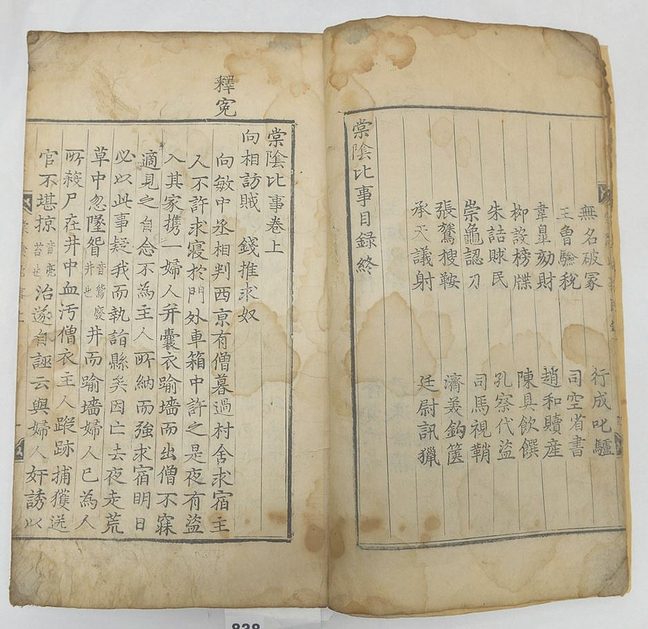 無名破冢 行成叱驢
王曾驗稅 司空省書
韋皐劾財 趙和贖産
柳設榜牒 陳具飲饌
朱詰賕民 孔察代盜
崇龜認刀 司馬視鞘
張鷟搜鞍 濟美鈎篋
承天議射 廷尉訊獵
棠陰比事目録終
釋寃
棠陰比事卷上
向相訪賊 錢推求奴
向敏中丞相判西京有僧暮過村舍求宿主
人不許求寢扵門外車箱中許之是夜有盜
入其家携一婦人并囊衣踰墻而出僧不寐
適見之自念不為主人所納而強求宿明日
必以此事疑我而執詣縣矣因亡去夜走荒
草中忽墜眢音鴛廢井也井而踰墻婦人已為人
所殺尸在井中血汚僧衣主人蹤跡捕獲送
官不堪掠音亮笞也治遂自誣云與婦人奸誘以
838